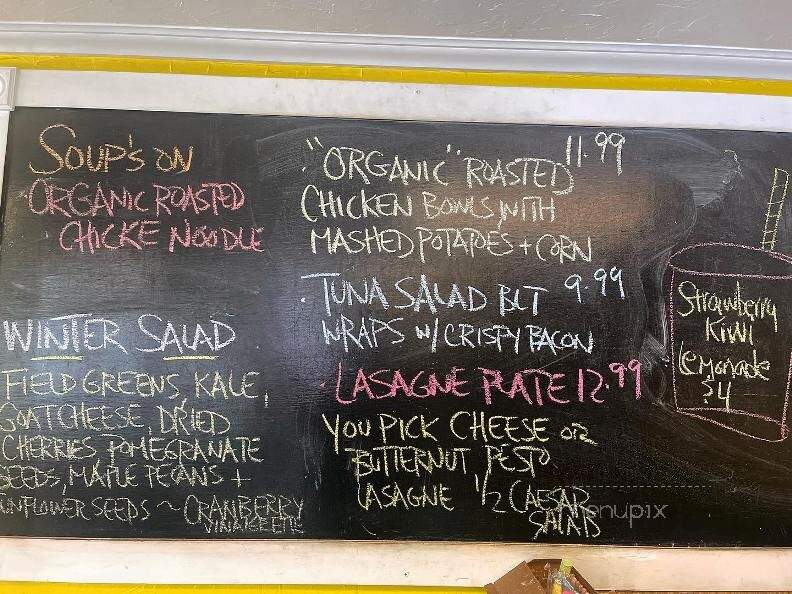 SOUP'S ON
ORGANIC ROASTED
CHICKE NOODLE
WINTER SALAD
FIELD GREENS, KALE,
GOAT CHEESE, DRIED
CHERRIES POMEGRANATE
SEEDS, MAPLE PECANS +
SUNFLOWER SEEDS ~ CRANBERRY
VINAIGRETTE
"ORGANIC" ROASTED 11.99
CHICKEN BOWLS WITH
MASHED POTATOES + CORN
TUNA SALAD BLT 9.99
WRAPS W/ CRISPY BACON
LASAGNE PLATE 12.99
YOU PICK CHEESE OR
BUTTERNUT PESTO
LASAGNE 1/2 CAESAR
SALADS
Strawberry
Kiwi
Lemonade
$4
menupix